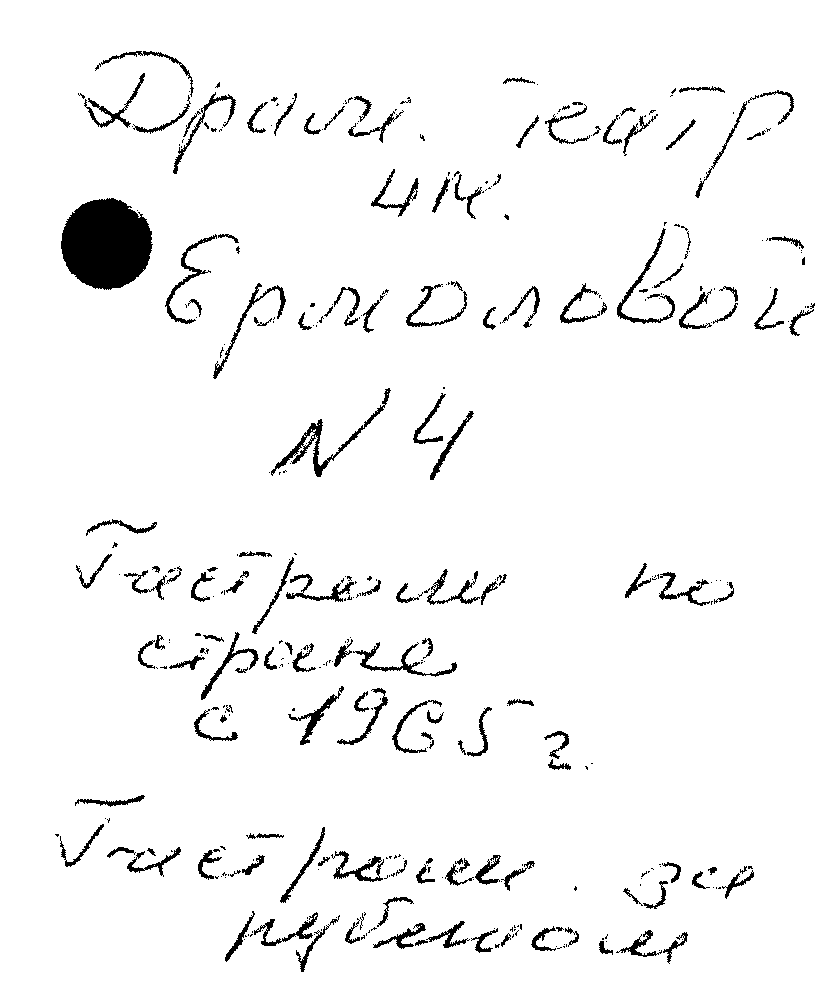 Драм. театр
им.
Ермоловой
N 4
Гастроли по
стране
с 1965 г.
Гастроли за
рубежом